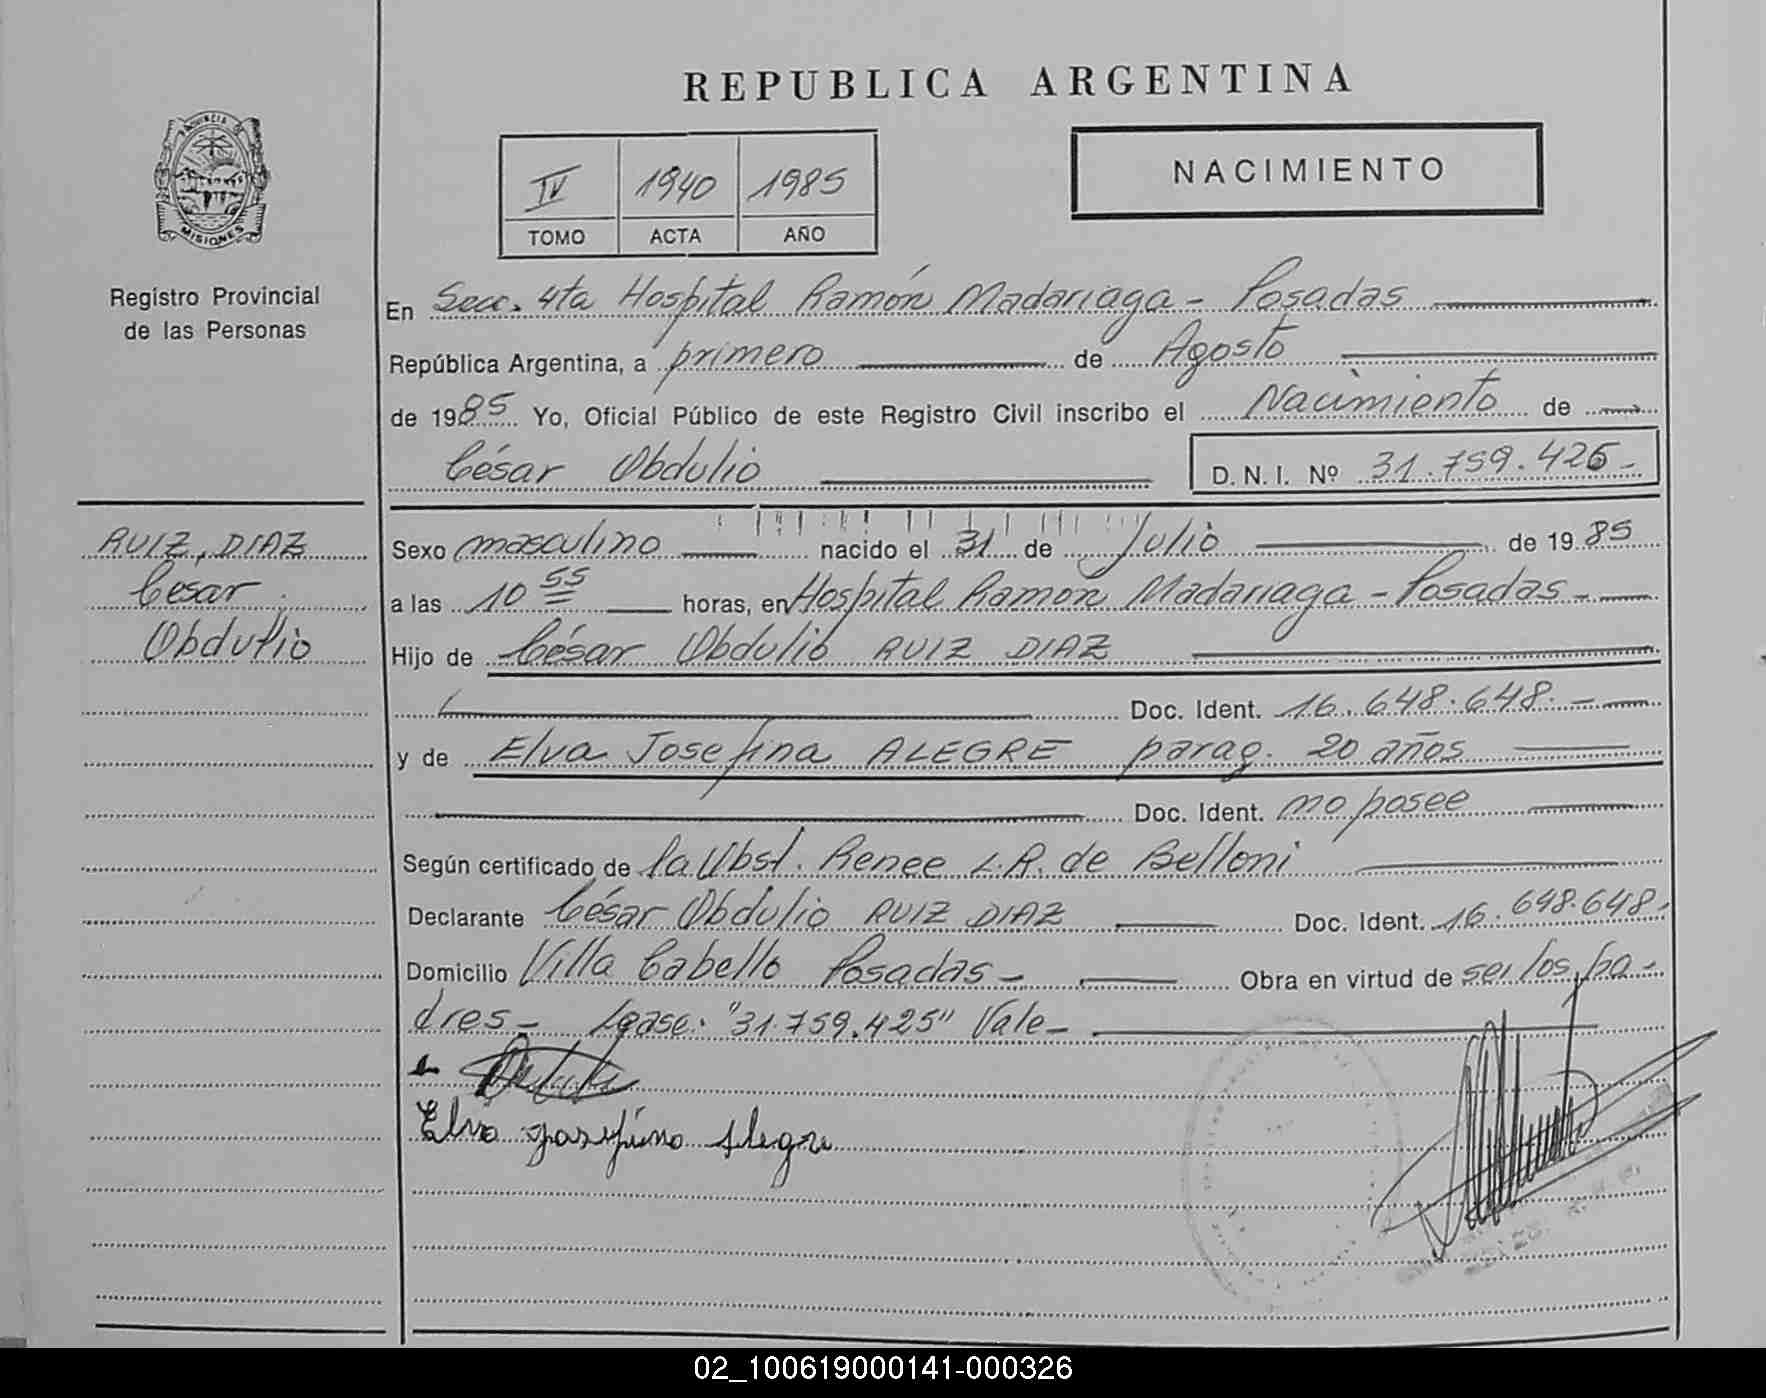 REPUBLICA ARGENTINA
PROVINCIA DE
MISIONES
IV 1940 1985
TOMO ACTA AÑO
NACIMIENTO
Registro Provincial
de las Personas
En Secc. 4ta Hospital Ramón Madariaga - Posadas
República Argentina, a primero de Agosto
de 1985 Yo, Oficial Público de este Registro Civil inscribo el Nacimiento de
César Obdulio D. N. I. Nº 31.759.426-
RUIZ, DIAZ
Cesar
Obdulio
Sexo masculino nacido el 31 de Julio de 1985
a las 10 55 horas, en Hospital Ramón Madariaga - Posadas -
Hijo de César Obdulio RUIZ DIAZ
Doc. Ident. 16.648.648.-
y de Elva Josefina ALEGRE parag. 20 años
Doc. Ident. no posee
Según certificado de la Obst. Renee L.R. de Belloni
Declarante César Obdulio RUIZ DIAZ Doc. Ident. 16.648.648.
Domicilio Villa Cabello Posadas - Obra en virtud de ser los pa-
dres - Léase: "31.759.425" Vale -
Elva Josefina Alegre
02_100619000141-000326